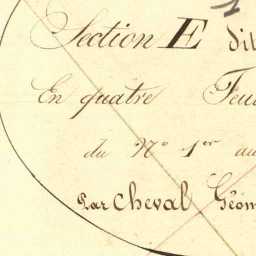 Section E dit
En quatre Feu
du N° 1er au
Par Cheval Géom